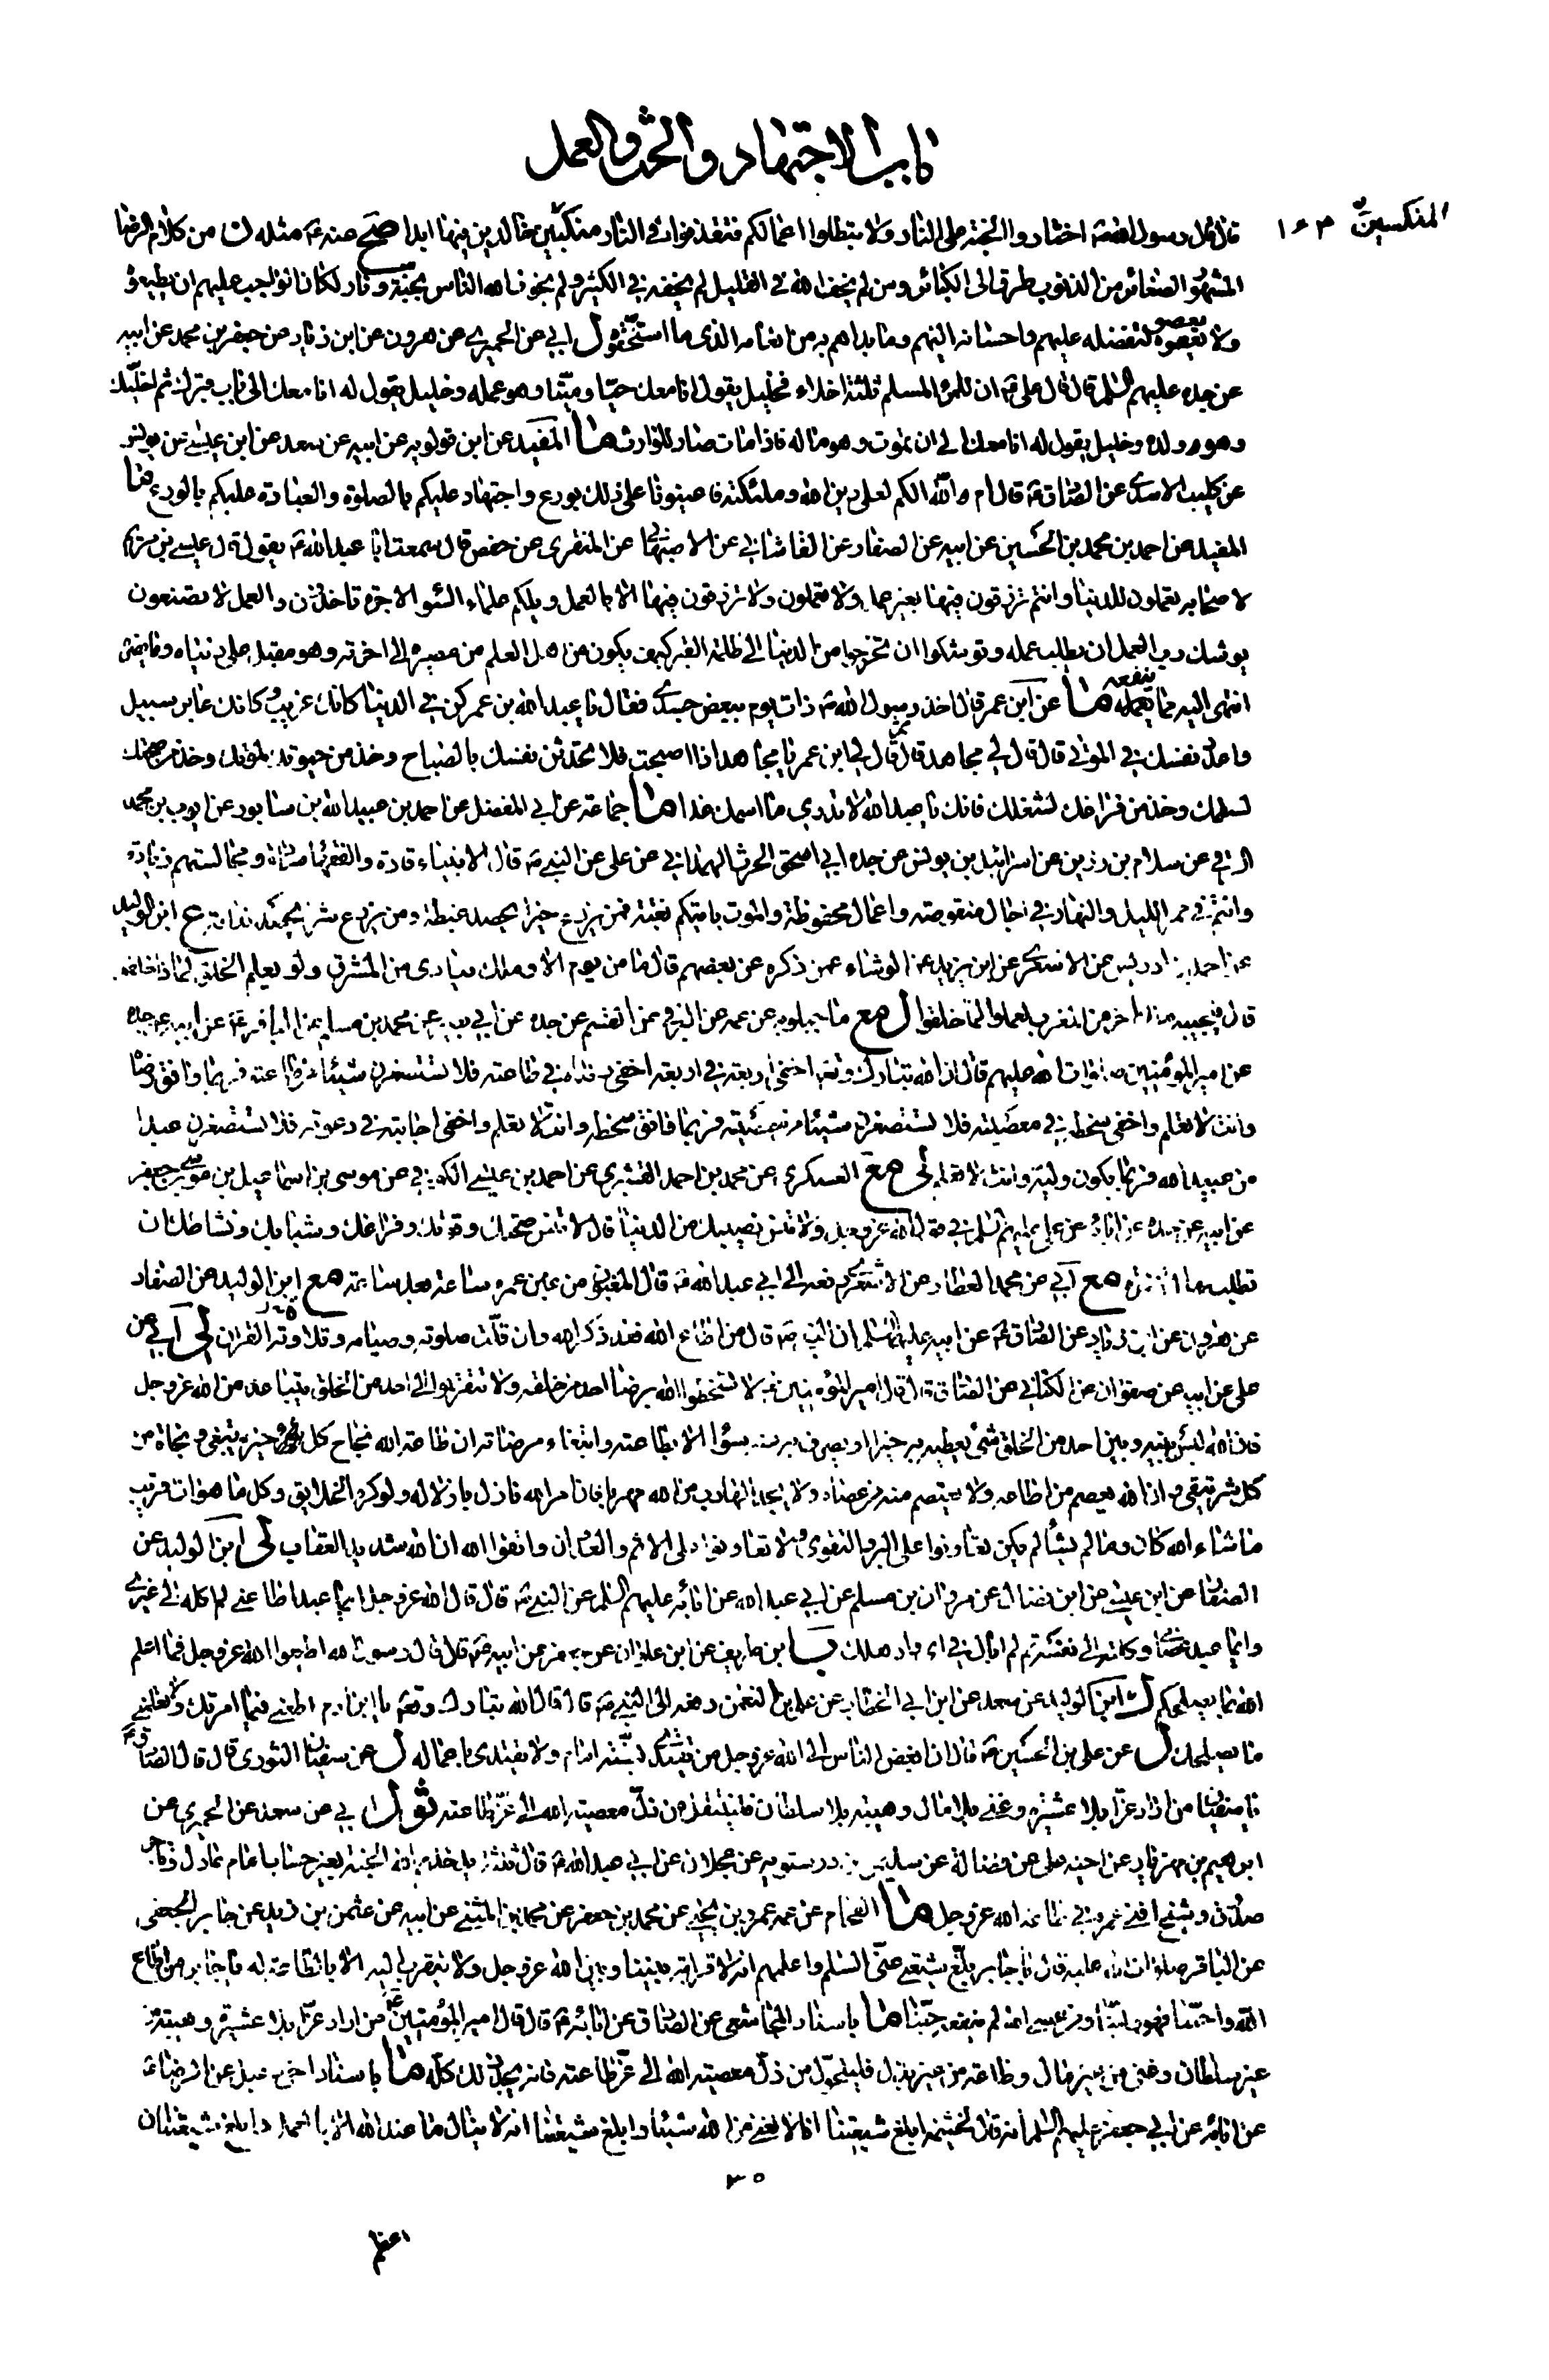 باب الاجتهاد والحث والعمل
المنكسين
قال قال رسول الله ص اختاروا الجنة على النار ولا تبطلوا اعمالكم فتقذفوا في النار منكبين خالدين فيها ابدا صح عنه ع مثله ن من كلام الرضا
المشهور الصغائر من الذنوب طرق الى الكبائر ومن لم يخف الله في القليل لم يخفه في الكثير ولو لم يخوف الله الناس بجنة ونار لكان الواجب عليهم ان يطيعوه
ولا يعصوه لتفضله عليهم واحسانه اليهم وما بداهم به من انعامه الذى ما استحقوه ل ابي عن الحميري عن هرون عن ابن زياد عن جعفر بن محمد عن ابيه
عن جده عليهم السلم قال قال على ع ان للمرء المسلم ثلثة اخلاء فخليل يقول انا معك حيا وميتا وهو عمله وخليل يقول له انا معك الى باب قبرك ثم اخليك
وهو ولده وخليل يقول له انا معك الى ان تموت وهو ماله فاذا مات صار للوارث ما المفيد عن ابن قولويه عن ابيه عن سعد عن ابن عيسى عن يونس
عن كليب الاسدي عن الصادق ع قال ام والله انكم لعلى دين الله وملئكته فاعينونا على ذلك بورع واجتهاد عليكم بالصلوة والعبادة عليكم بالورع ما
المفيد عن احمد بن محمد بن الحسين عن ابيه عن الصفار عن القاشاني عن الاصبهاني عن المنقرى عن حفص قال سمعت ابا عبد الله ع يقول قال عيسى بن مريم
لاصحابه تعملون للدنيا وانتم ترزقون فيها بغير عمل ولا تعملون للاخرة ولا ترزقون فيها الا بالعمل ويلكم علماء السوء الاجرة تاخذون والعمل لا تصنعون
يوشك رب العمل ان يطلب عمله وتوشكوا ان تخرجوا من الدنيا الى ظلمة القبر كيف يكون من اهل العلم من مصيره الى اخرته وهو مقبل على دنياه وما يضره
اشهى اليه مما ينفعه ما عن ابن عمر قال اخذ رسول الله ص ذات يوم ببعض جسدي فقال يا عبد الله بن عمر كن في الدنيا كانك غريب وكانك عابر سبيل
واعدد نفسك في الموتى قال قال لي مجاهد ثم قال لي ابن عمر يا مجاهد اذا اصبحت فلا تحدثن نفسك بالصباح وخذ من حيوتك لموتك وخذ من صحتك
لسقمك وخذ من فراغك لشغلك فانك يا عبد الله لا تدري ما اسمك غدا ما جماعة عن ابي المفضل عن احمد بن عبيد الله بن سابور عن ايوب بن محمد
الرقي عن سلام بن رزين عن اسرائيل بن يونس عن جده ابي اسحق عن الحرث الهمداني عن على عن النبي ص قال الانبياء قادة والفقهاء سادة ومجالستهم زيادة
وانتم في ممر الليل والنهار في اجال منقوصة واعمال محفوظة والموت ياتيكم بغتة فمن يزرع خيرا يحصد غبطة ومن يزرع شرا يحصد ندامة ع ابن الوليد
عن احمد بن ادريس عن الاشعري عن ابن يزيد عن الوشاء عمن ذكره عن بعضهم قال ما من يوم الا وملك ينادى من المشرق ولو يعلم الخلق لماذا خلقوا
قال فيجيبه ملك اخر من المغرب لعملوا لما خلقوا ل مع ماجيلويه عن عمه عن البرقي عن القسم عن جده عن ابي بصير عن محمد بن مسلم عن الباقر ع عن ابيه عن جده
عن امير المؤمنين صلوات الله عليهم قال ان الله تبارك وتعالى اخفى اربعة في اربعة اخفى رضاه في طاعته فلا تستصغرن شيئا من طاعته فربما وافق رضاه
وانت لا تعلم واخفى سخطه في معصيته فلا تستصغرن شيئا من معصيته فربما وافق سخطه وانت لا تعلم واخفى اجابته في دعوته فلا تستصغرن
من عبيد الله فربما يكون وليه وانت لا تعلم لى مع العسكرى عن محمد بن احمد القشيري عن احمد بن عيسى الكوفي عن موسى بن اسماعيل بن موسى بن جعفر
عن ابيه عن جده عن ابائه عن على عليهم السلم في قول الله عز وجل ولا تنس نصيبك من الدنيا قال لا تنس صحتك وقوتك وفراغك وشبابك ونشاطك ان
تطلب بها الاخرة مع ابي عن محمد العطار عن الاشعري رفعه الى ابي عبد الله ع قال المغبون من غبن عمره ساعة بعد ساعة مع ابن الوليد عن الصفار
عن هرون عن ابن زياد عن الصادق ع عن ابيه عليهما السلم ان النبي ص قال من اطاع الله فقد ذكر الله وان قلت صلوته وصيامه وتلاوته القران لى ابي عن
على عن ابيه عن صفوان عن الكناني عن الصادق ع قال قال امير المؤمنين ع لا تسخطوا الله برضا احد من خلقه ولا تتقربوا الى احد من الخلق بتباعد من الله عز وجل
فان الله ليس بينه وبين احد من الخلق شئ يعطيه به خيرا او يصرف به عنه سوءا الا بطاعته وابتغاء مرضاته ان طاعة الله نجاح كل خير يبتغى ونجاة من
كل شر يتقى وان الله يعصم من اطاعه ولا يعتصم منه من عصاه ولا يجد الهارب من الله مهربا فان امر الله نازل باذلاله ولو كره الخلايق وكل ما هو ات قريب
ما شاء الله كان وما لم يشأ لم يكن تعاونوا على البر والتقوى ولا تعاونوا على الاثم والعدوان واتقوا الله ان الله شديد العقاب لى ابن الوليد عن
الصفار عن ابن عيسى عن ابن فضال عن مروان بن مسلم عن ابي عبد الله عن ابائه عليهم السلم عن النبي ص قال قال الله عز وجل ايما عبد اطاعني لم اكله الى غيري
وايما عبد عصاني وكلته الى نفسه ثم لم ابال في اي واد هلك ب ابن طريف عن ابن علوان عن جعفر عن ابيه ع قال قال رسول الله اطيعوا الله عز وجل فما اعلم
الله بما يصلحكم ابن الوليد عن سعد عن ابن ابي الخطاب عن على بن النعمن رفعه الى النبي ص قال قال الله تبارك وتعالى يا ابن ادم اطعني فيما امرتك ولا تعلمني
ما يصلحك ل عن على بن الحسين ع قال ان ابغض الناس الى الله عز وجل من يقتدى بسنة امام ولا يقتدى باعماله ل عن سفيان الثورى قال قال الصادق ع
يا سفيان من اراد عزا بلا عشيرة وغنى بلا مال وهيبة بلا سلطان فلينتقل من ذل معصية الله الى عز طاعته ثول ابي عن سعد عن الحميري عن
ابرهيم بن مهزيار عن اخيه على عن فضالة عن سليمن بن درستويه عن عجلان عن ابي عبد الله ع قال ثلثة يدخلهم الله الجنة بغير حساب امام عادل وتاجر
صدوق وشيخ افنى عمره في طاعة الله عز وجل ما الفحام عن عمه عمرو بن يحيى عن محمد بن جعفر عن محمد بن المثنى عن ابيه عن عثمن بن زيد عن جابر الجعفى
عن الباقر صلوات الله عليه قال يا جابر بلغ شيعتي عني السلم واعلمهم انه لا قرابة بيننا وبين الله عز وجل ولا يتقرب اليه الا بالطاعة له يا جابر من اطاع
الله واحبنا فهو ولينا ومن عصى الله لم ينفعه حبنا ما باسناد المجاشعى عن الصادق عن ابائه ع قال قال امير المؤمنين ع من اراد عزا بلا عشيرة وهيبة من
غير سلطان وغنى من غير مال وطاعة من غير بذل فليتحول من ذل معصية الله الى عز طاعته فانه يجد ذلك كله ما باسناد اخى دعبل عن الرضا ع
عن ابائه عن ابي جعفر عليهم السلم انه قال لخيثمة ابلغ شيعتنا انا لا نغنى من الله شيئا وابلغ شيعتنا انه لا ينال ما عند الله الا بالعمل وابلغ شيعتنا ان
٣٥
اعظم